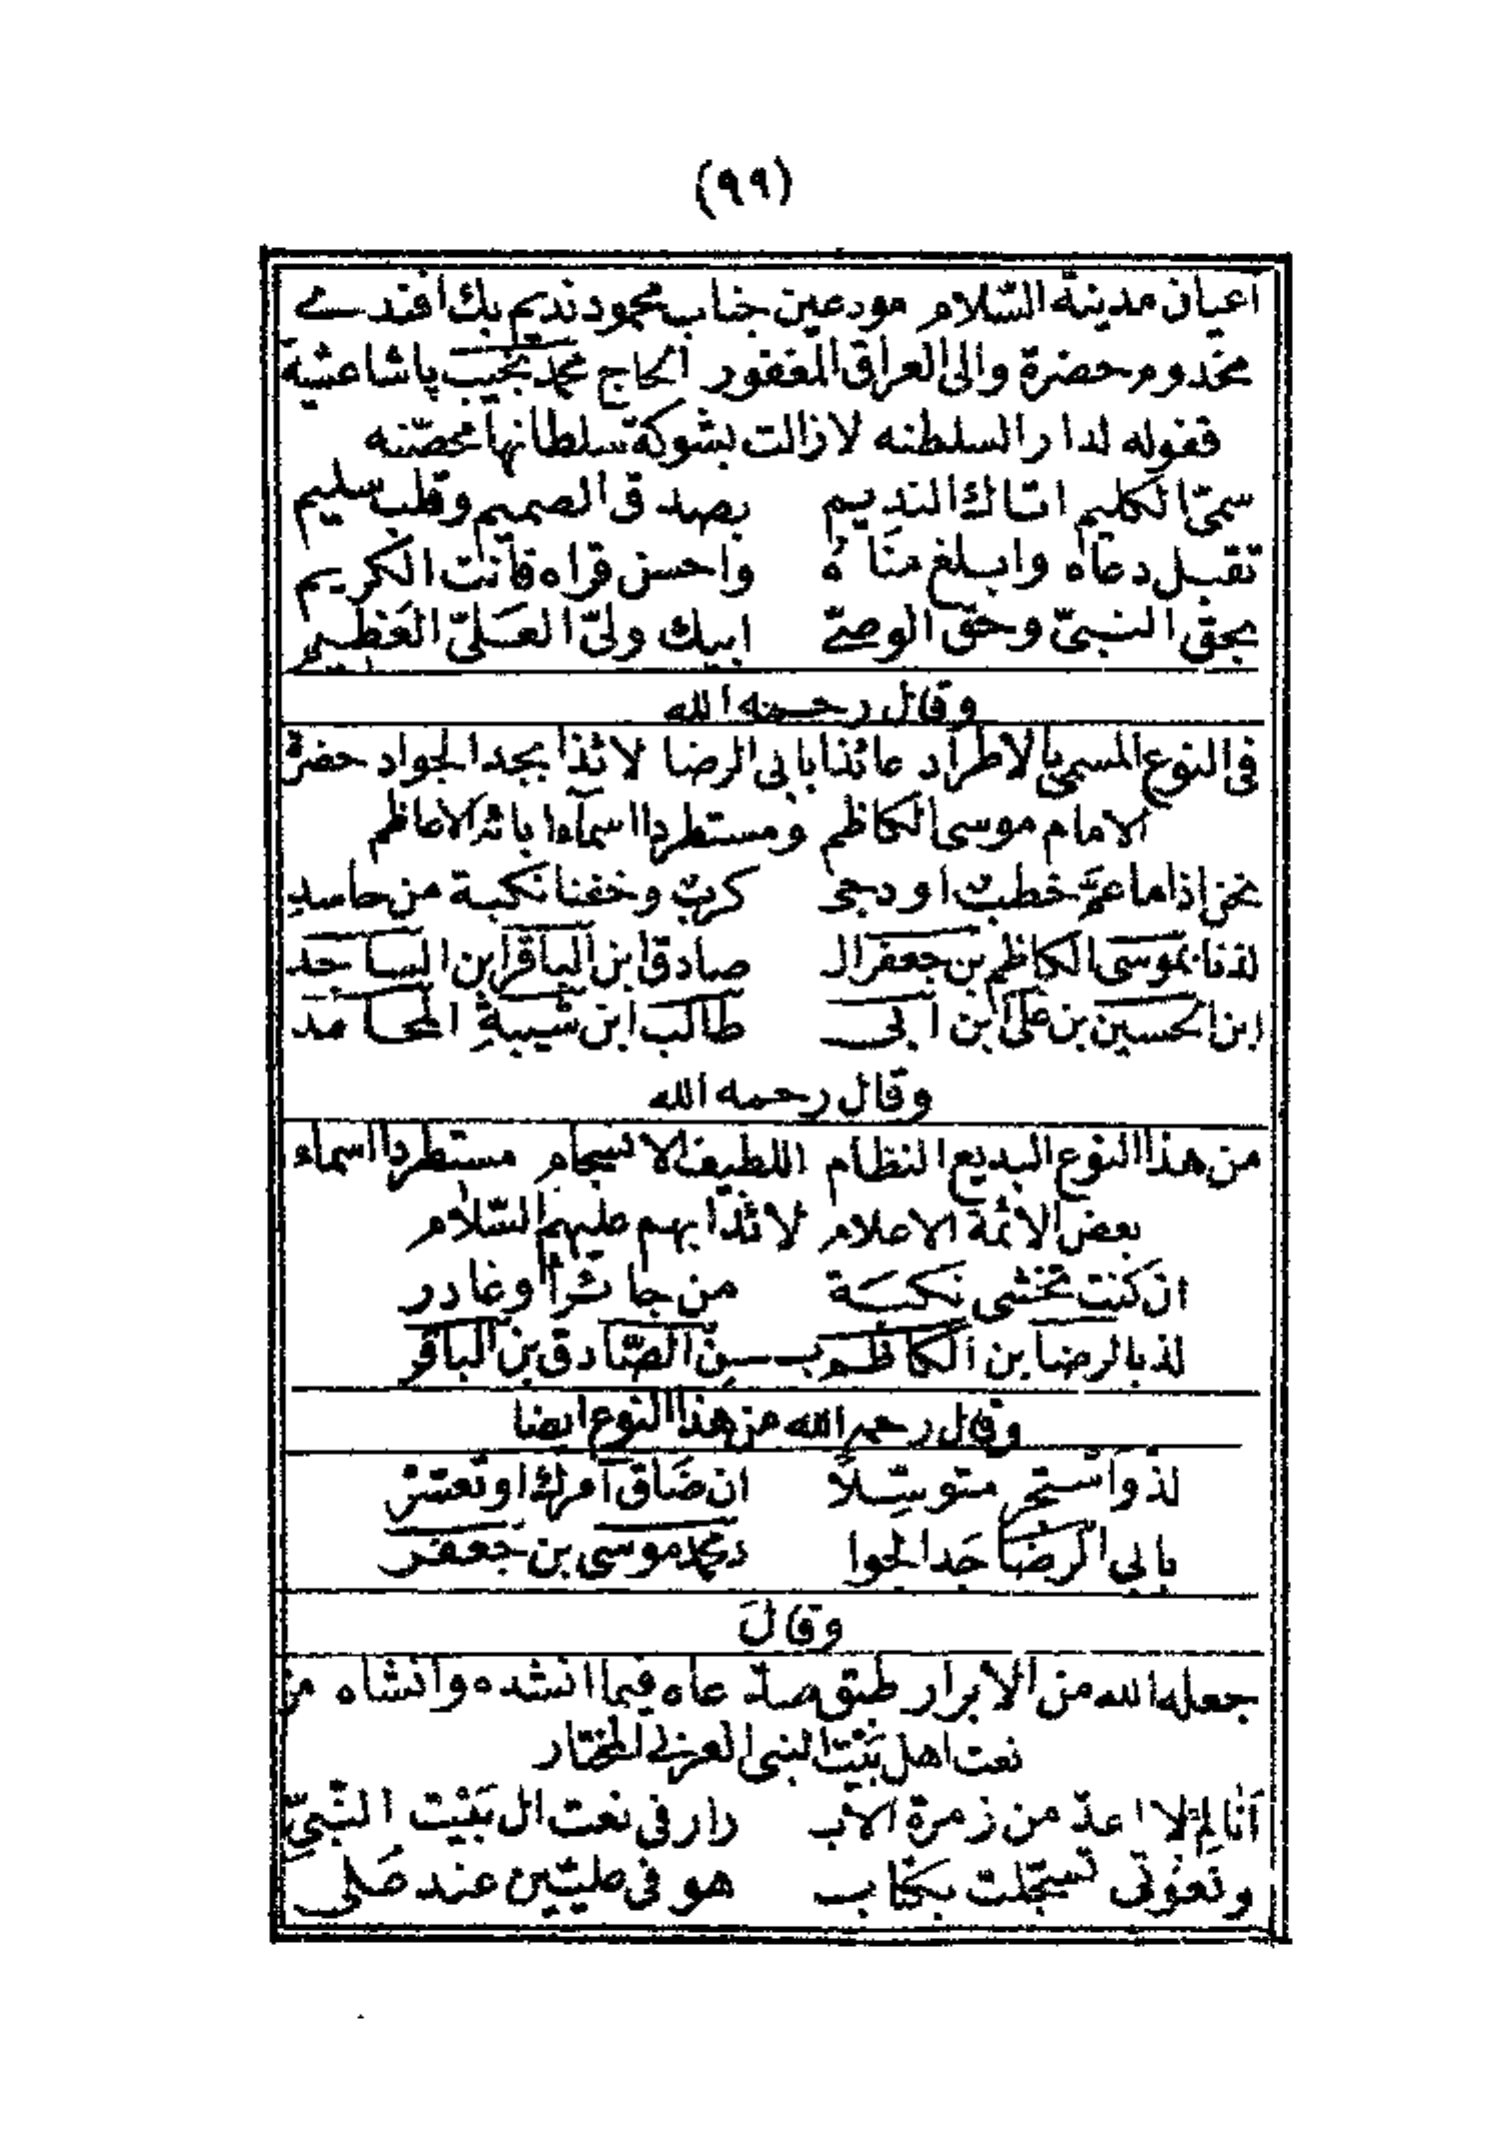 (٩٩)
اعيان مدينة السّلام مودعين جناب محمود نديم بك افندے
مخدوم حضرة والى العراق المغفور الحاج محمد نجيب پاشا عشية
قفوله لدار السلطنه لا زالت بشوكة سلطانها محصّنه
سمىّ الكليم اتاك النديم بصدق الصميم وقلب سليم
تقبل دعاه وابلغ منَاهُ واحسن قراه فأنت الكريم
بحق النبىّ وحق الوصىّ ابيك ولىّ العَلىّ العَظيم
وقال رحمه الله
فى النوع المسمى بالاطراد عائذا بابى الرضا لائذا بجد الجواد حضرة
الامام موسى الكاظم ومستطردا اسمآء ابائه الاعاظم
نحن اذا ما عمَّ خطبٌ او دجى كربٌ وخفنا نكبة من حاسدِ
لذنا بموسى الكاظم بن جعفر ال صادق ابن الباقر ابن الساجد
ابن الحسين بن على ابن ابى طالب ابن شيبةِ المحامد
وقال رحمه الله
من هذا النوع البديع النظام اللطيف الانسجام مستطردا اسماء
بعض الائمة الاعلام لائذًا بهم عليهم السّلام
ان كنت تخشى نكبَة من جائر أو غادر
لذ بالرضا بن الكاظم بــن الصّادق بن الباقر
وقال رحمه الله من هذا النوع ايضا
لذ واستجر متوسّلًا ان ضَاق أمرك او تعسّر
بابى الرضا جَد الجوا د محمد موسى بن جعفر
وقالَ
جعله الله من الابرار طبق مدّعاه فيما انشده وانشاه من
نعت اهل بَيْت النبى العربى المختار
أنا لِمْ لا اعدّ من زمرة الاب رار فى نعت ال بَيْت النّبىِّ
ونعوتى تسجّلت بكتاب هو فى عليّين عند عَلى